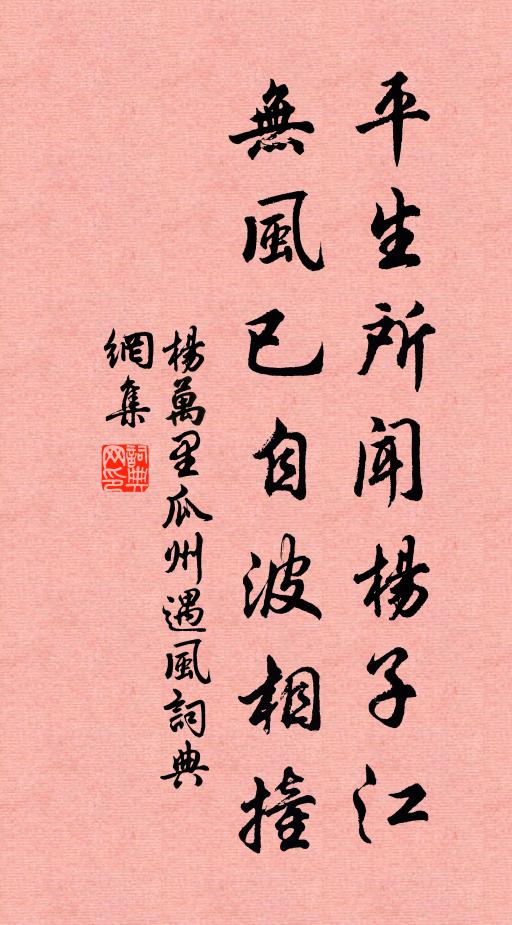 平生所聞楊子江
無風已自波相撞
楊萬里瓜州遇風詞典
網集
詞典
网印